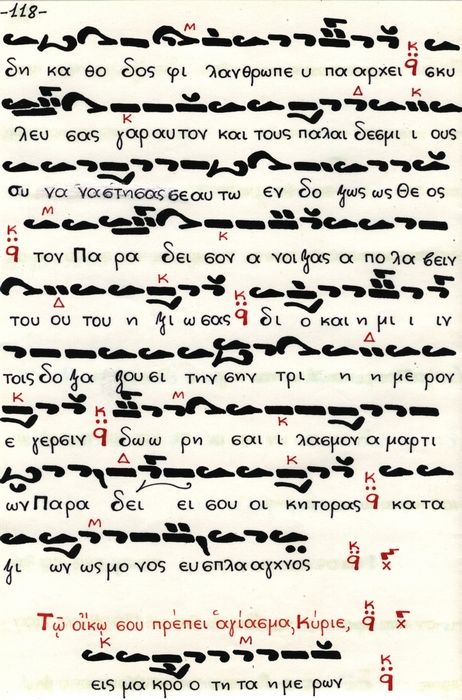 -118-
δη κα θο δος φι λανθρωπε υ πα αρχει σκυ
λευ σας γαρ αυτον και τους παλαι δεσμι ι ους
συ να ναστησας σεαυτω εν δο ξως ως Θε ος
τον Πα ρα δει σον α νοιξας α πο λα βειν
του ου του η ξι ω σας δι ο και η μι ι ιν
τοις δο ξα ζου σι την σην τρι η με ρον
ε γερσιν δω ω ρη σαι ι λασμον α μαρτι
ων Παρα δει ει σου οι κη τορας κα τα
ξι ων ως μο νος ευ σπλα αγχνος
Τῷ οἴκῳ σου πρέπει ἁγίασμα, Κύριε,
εις μα κρο ο τη τα η με ρων